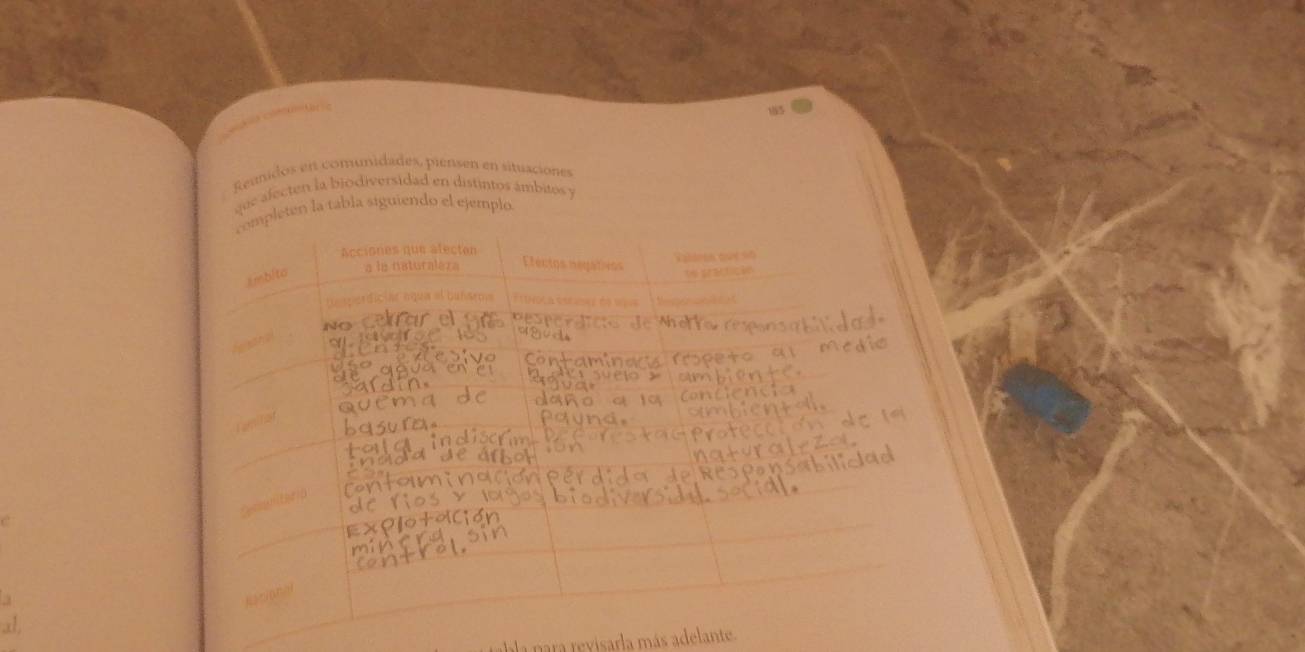 comunitario
183
Reunidos en comunidades, piensen en situaciones
que afecten la biodiversidad en distintos ámbitos y
completen la tabla siguiendo el ejemplo.
Ámbito
Acciones que afectan
a la naturaleza
Efectos negativos
Valores que no
se practican
Desperdiciar agua al bañarnos
Provoca escasez de agua
Responsabilidad
Personal
No cerrar el
al lavarse los
dientes.
Desperdicio de
agud.
responsabilidad.
uso exesivo
de agua en el
Jardin.
contaminació
n del suelo y
agua.
respeto al medio
ambiente.
Familiar
quema de
basura.
daño a la
Pauna.
conciencia
ambiental.
tala indiscrim-
inada de árbol
ion
protección de la
naturaleza.
Comunitario
contaminación
de rios y lagos
pérdida de
biodiversidd.
Responsabilidad
social.
Explotación
minera sin
control.
Nacional
tabla para revisarla más adelante.
al,